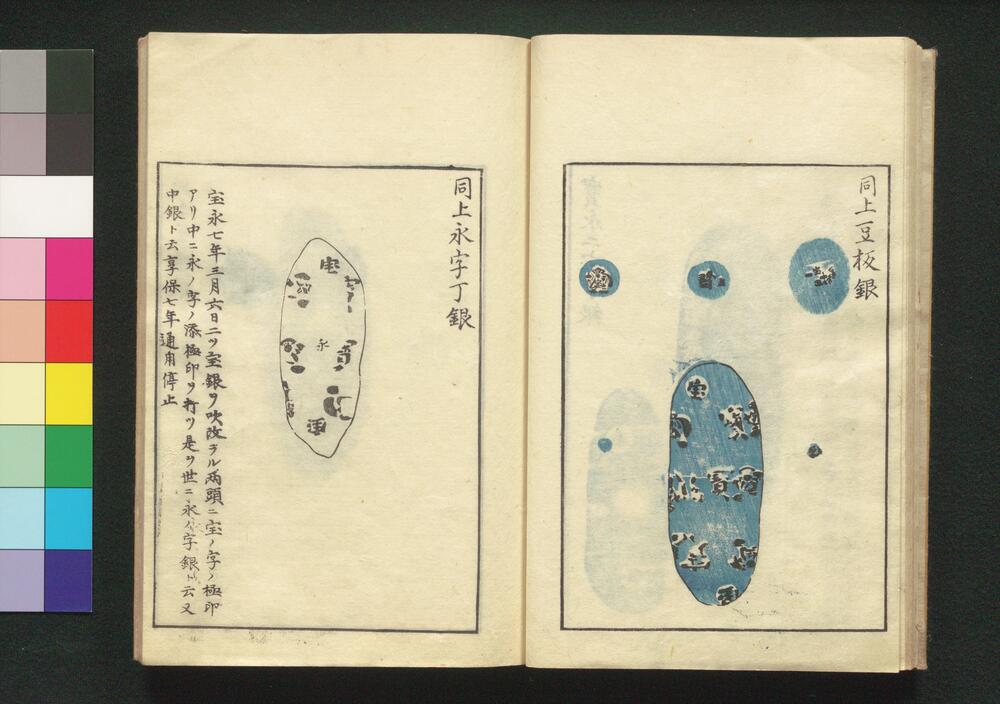 同上豆板銀
宝
宝
同上永字丁銀
宝
永
宝
宝永七年三月六日二ツ宝銀ヲ吹改ラル両頭ニ宝ノ字ノ極印
アリ中ニ永ノ字ノ添極印ヲ打ツ是ヲ世ニ永ノ字銀ト云又
中銀ト云享保七年通用停止